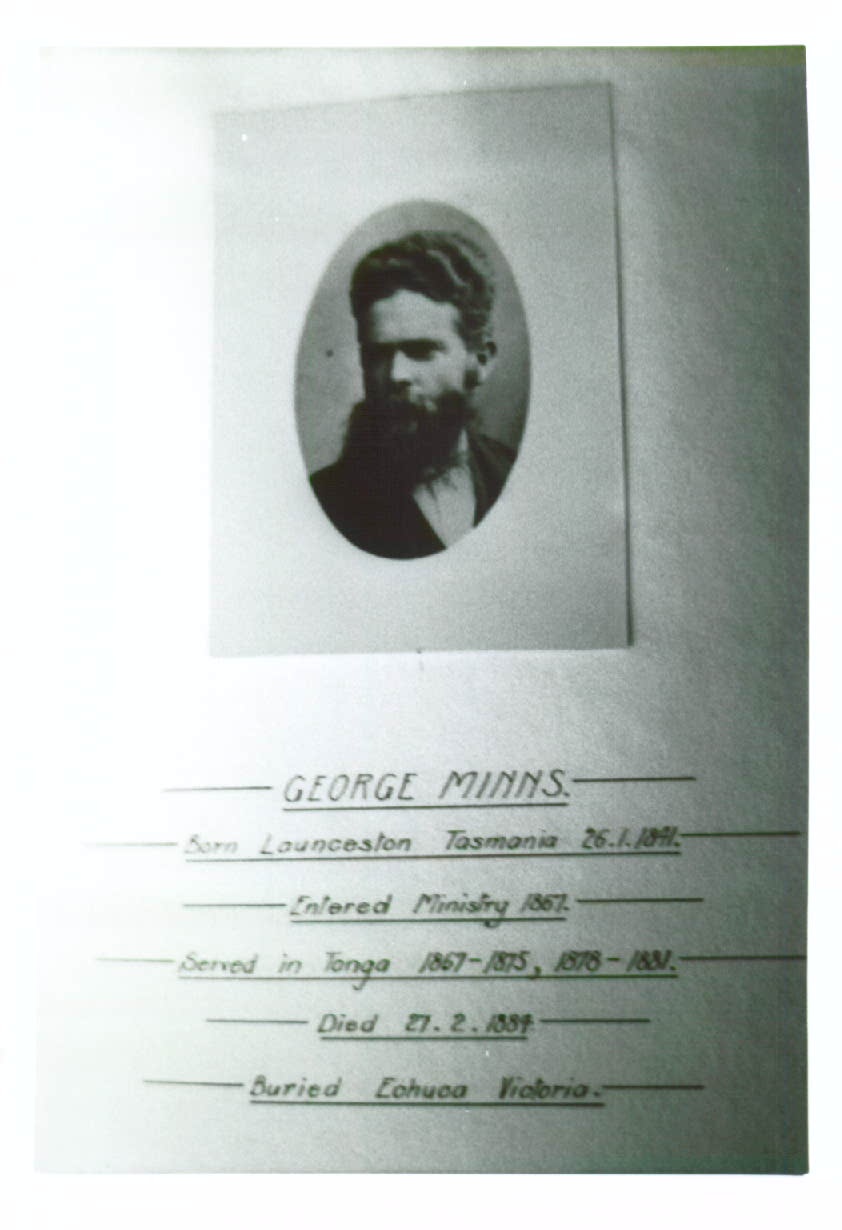 GEORGE MINNS.
Born Launceston Tasmania 26.1.1841.
Entered Ministry 1867.
Served in Tonga 1867-1875, 1878-1881.
Died 27.2.1884
Buried Echuca Victoria.